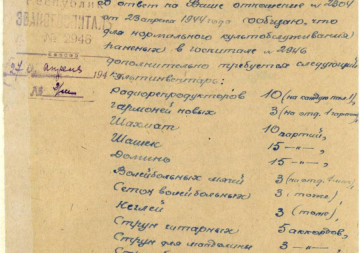 Республики
ЭВАКОГОСПИТАЛЬ
№ 2946
27 апреля 194
№
В ответ на Ваше отношение № 2804
от 23 апреля 1944 года сообщаю, что
для нормального культобслуживания
раненых в госпитале № 2946
дополнительно требуется следующий
культинвентарь:
Радиорепродукторов 10
Гармоней новых 3
Шахмат 10 партий,
Шашек 15 —"—,
Домино 15 —"—
Волейбольных мячей 3
Сеток волейбольных 3 (тоже),
Кеглей 3 (тоже),
Струн гитарных 5 аккордов,
Струн для мандолины 3 —"—,